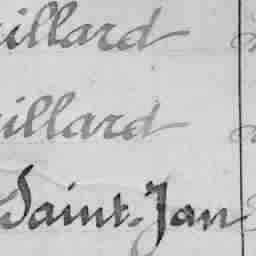 illard
illard
Saint-Jan